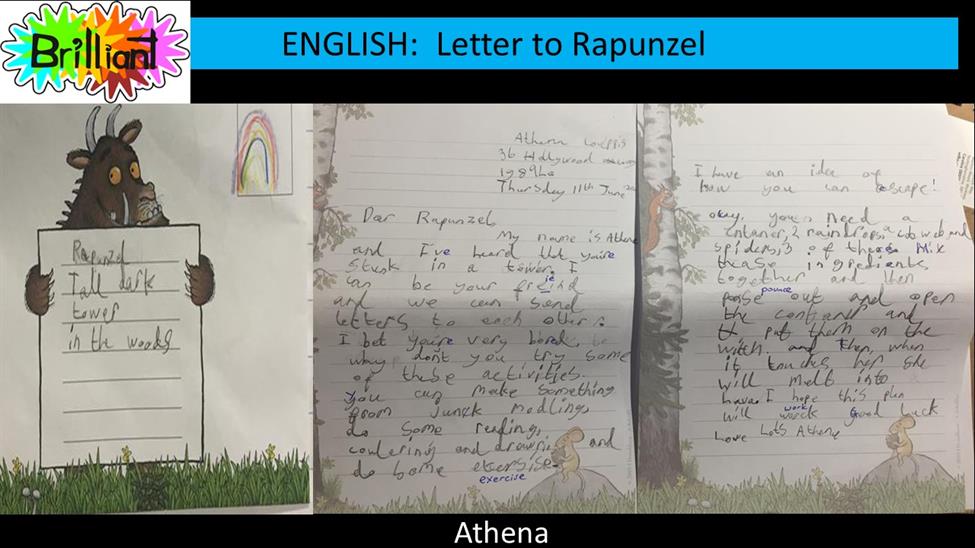 Brilliant
ENGLISH: Letter to Rapunzel
Rapunzel
Tall dark
tower
in the woods
Athena
36 Hollywood
1989La
Thursday 11th June
Dar Rapunzel
My name is Athena
and I've heard that you're
stuck in a tower. I
can be your freind
ie
and we can send
letters to each other.
I bet you're very bored,
why don't you try some
of these activities.
you can make something
from junck modling,
do some reading,
coulering and and
do some exersise
exercise
I have an idea of
how you can escape!
okay, you need a
2 raindrops, a cob web and
spiders, 3 of these. Mix
these ingredients
together and then
pounce
pose out and open
the and
put them on the
witch. and then when
it touches her she
will melt into
lava. I hope this plan
work
will worck Good luck
Love Lots Athena
Athena